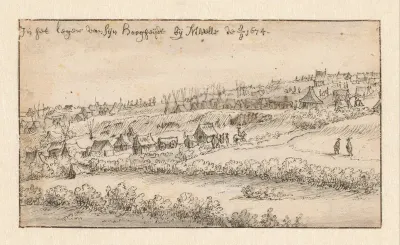 In het leger van Sijn Hoogheijt bij Nivelle de 1674.